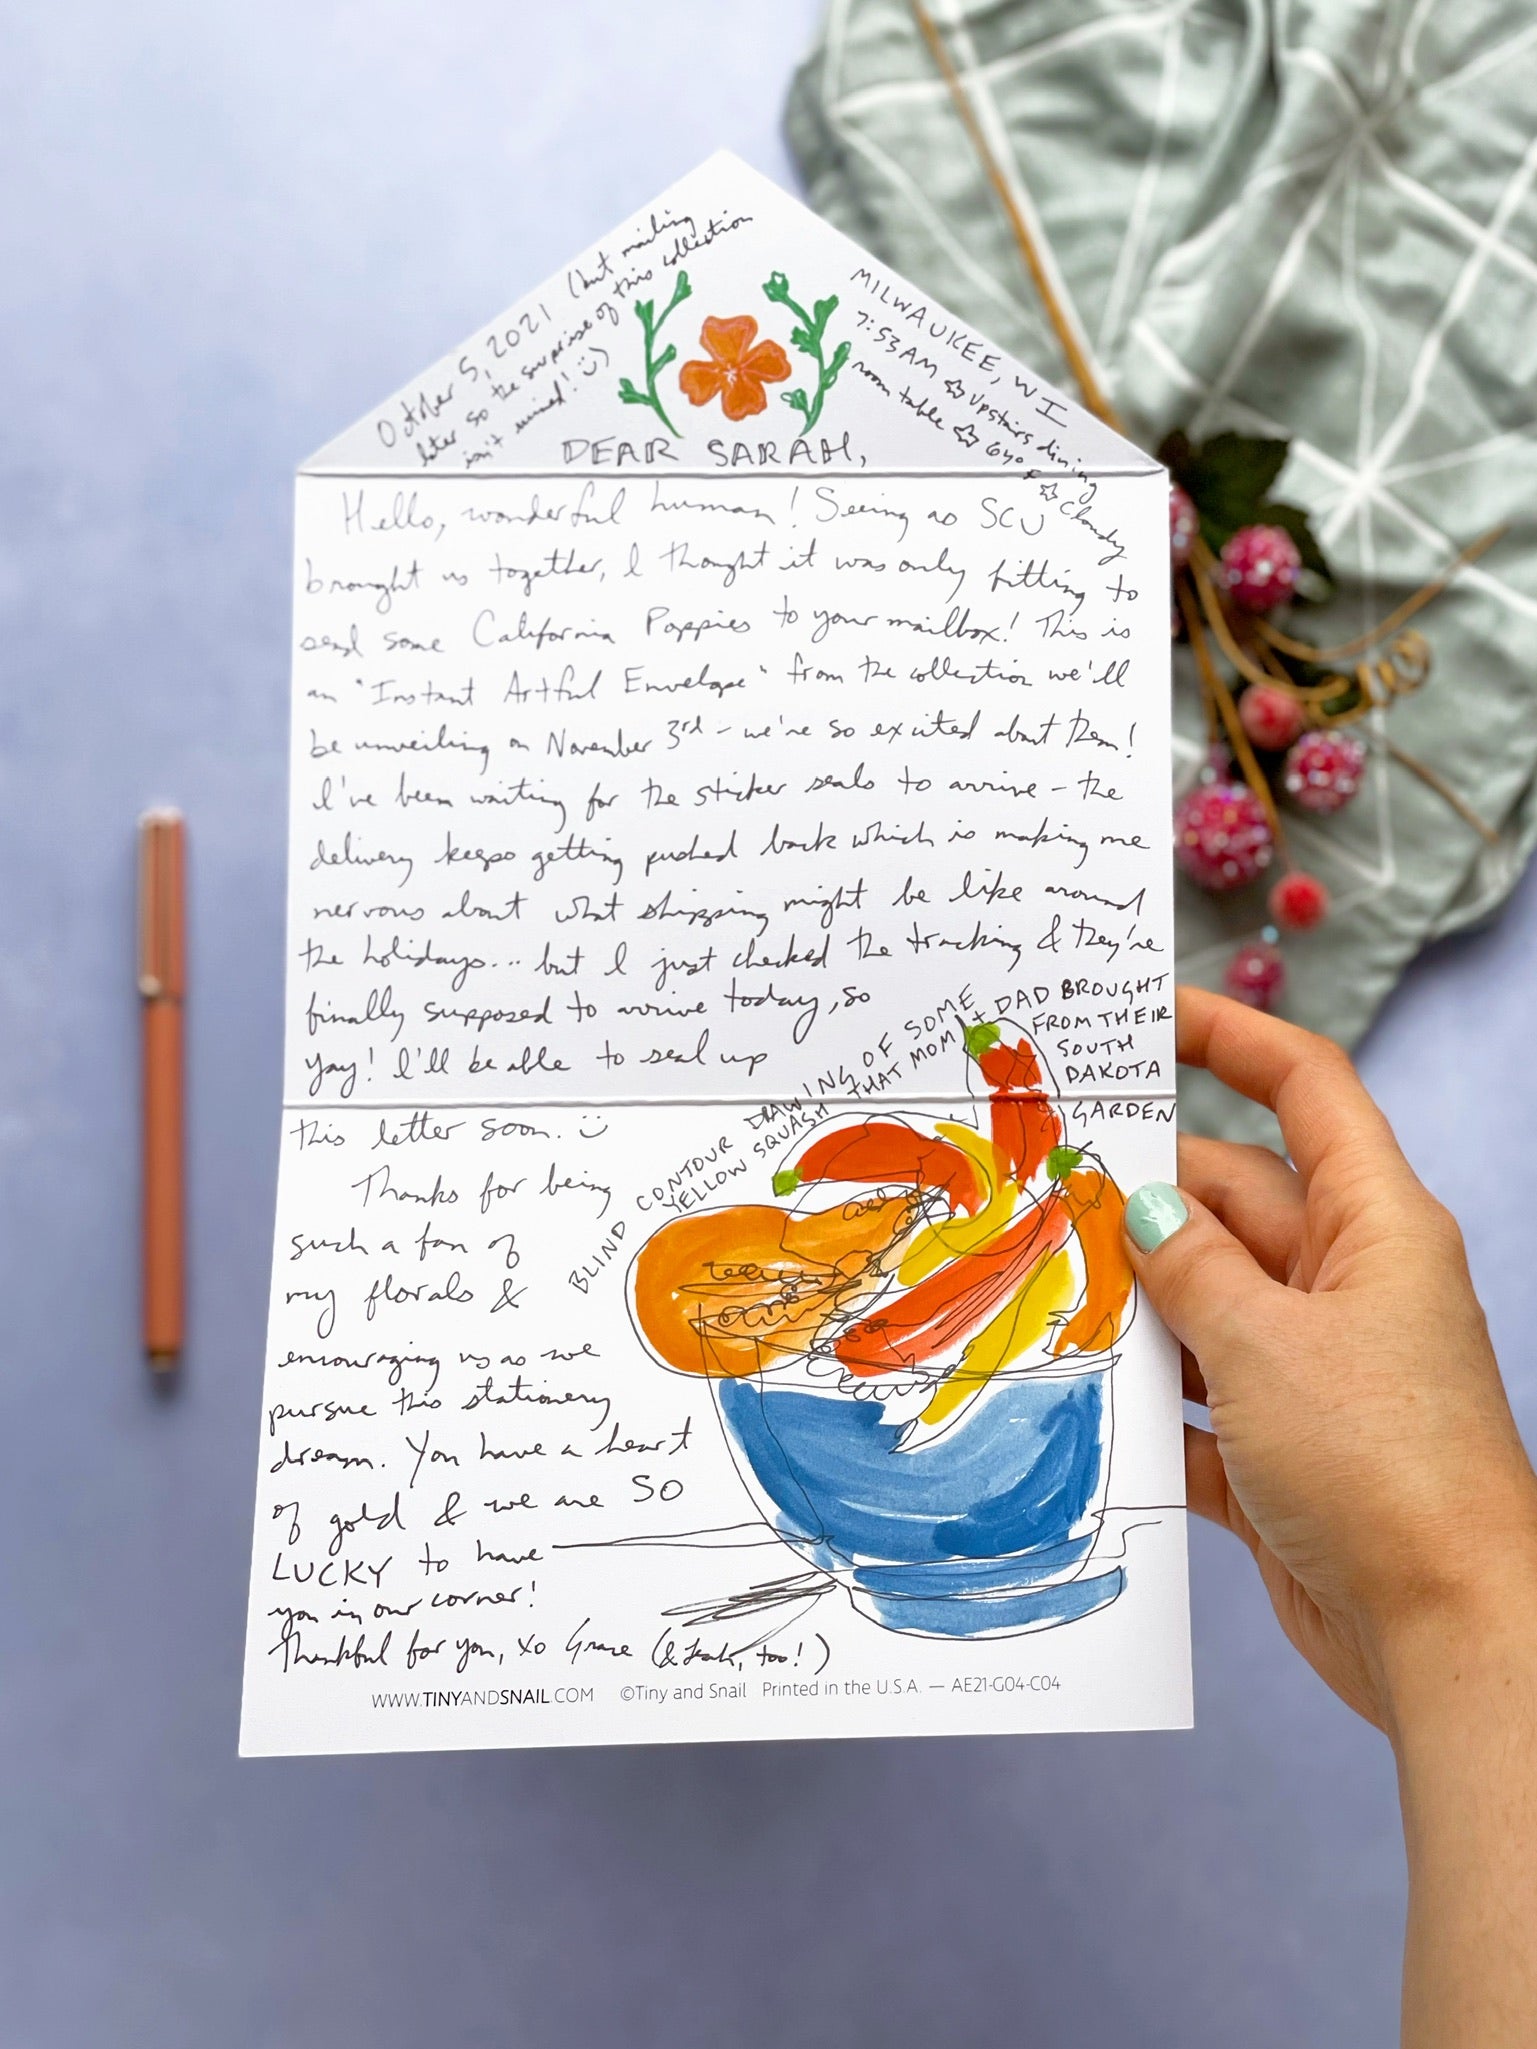 October 5, 2021 (but mailing
later so the surprise of this collection
isn't ruined! :)
MILWAUKEE, WI
7:53AM ☆ Upstairs dining
room table ☆ 64°F
☆ Cloudy
DEAR SARAH,
Hello, wonderful human! Seeing as SCU
brought us together, I thought it was only fitting to
send some California Poppies to your mailbox! This is
an "Instant Artful Envelope" from the collection we'll
be unveiling on November 3rd - we're so excited about them!
I've been waiting for the sticker seals to arrive - the
delivery keeps getting pushed back which is making me
nervous about what shipping might be like around
the holidays... but I just checked the tracking & they're
finally supposed to arrive today, so
yay! I'll be able to seal up
this letter soon. :)
Thanks for being
such a fan of
my florals &
encouraging us as we
pursue this stationery
dream. You have a heart
of gold & we are SO
LUCKY to have
you in our corner!
Thankful for you, xo Grace (& Leah, too!)
BLIND CONTOUR DRAWING OF SOME
YELLOW SQUASH THAT MOM + DAD BROUGHT
FROM THEIR
SOUTH
DAKOTA
GARDEN
WWW.TINYANDSNAIL.COM ©Tiny and Snail Printed in the U.S.A. — AE21-G04-C04